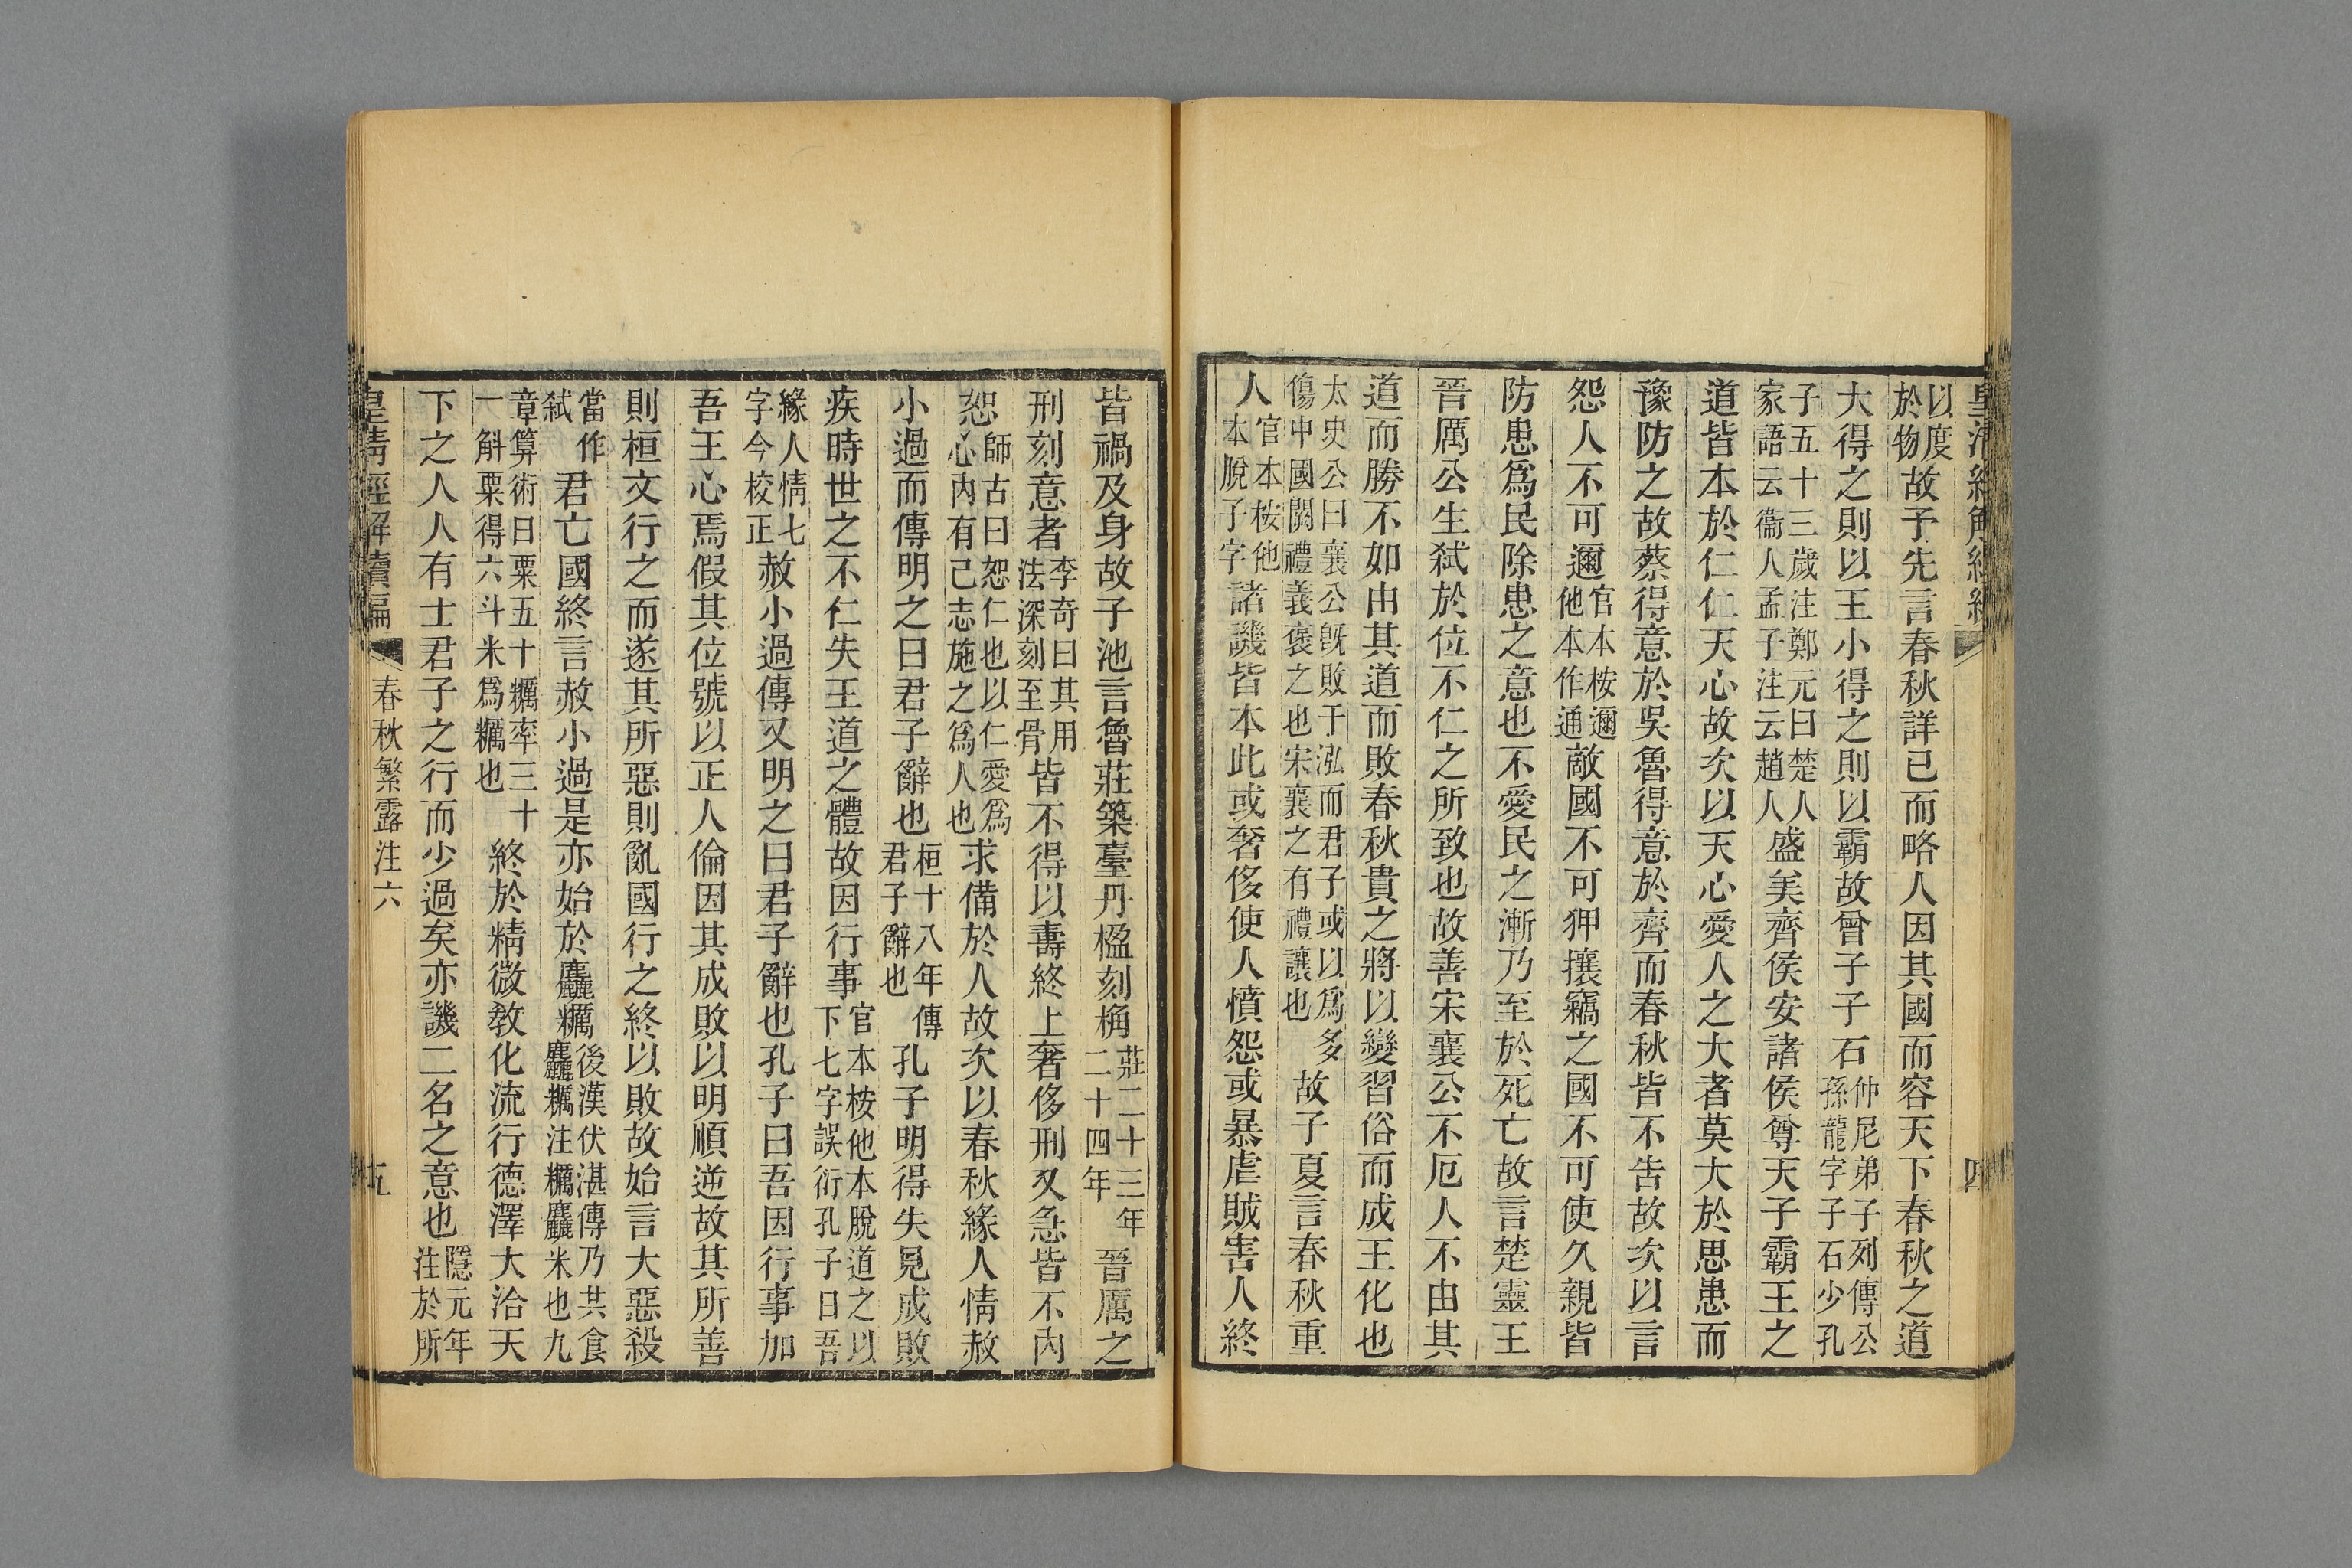 以度於物故予先言春秋詳己而略人因其國而容天下春秋之道
大得之則以王小得之則以霸故曾子子石仲尼弟子列傳公孫龍字子石少孔
子五十三歲注鄭元曰楚人家語云衞人孟子注云趙人盛美齊侯安諸侯尊天子霸王之
道皆本於仁仁天心故次以天心愛人之大者莫大於思患而
豫防之故蔡得意於吳魯得意於齊而春秋皆不告故次以言
怨人不可邇官本桉邇他本作通敵國不可狎攘竊之國不可使久親皆
防患爲民除患之意也不愛民之漸乃至於死亡故言楚靈王
晉厲公生弑於位不仁之所致也故善宋襄公不厄人不由其
道而勝不如由其道而敗春秋貴之將以變習俗而成王化也
太史公曰襄公旣敗于泓而君子或以爲多傷中國闕禮義褒之也宋襄之有禮讓也故子夏言春秋重
人官本桉他本脫子字諸譏皆本此或奢侈使人憤怨或暴虐賊害人終
皆禍及身故子池言魯莊築臺丹楹刻桷莊二十三年二十四年晉厲之
刑刻意者李奇曰其用法深刻至骨皆不得以壽終上奢侈刑又急皆不內
恕師古曰恕仁也以仁愛爲心內有己志施之爲人也求備於人故次以春秋緣人情赦
小過而傳明之曰君子辭也桓十八年傳君子辭也孔子明得失見成敗
疾時世之不仁失王道之體故因行事官本桉他本脫道之以下七字誤衍孔子曰吾
緣人情七字今校正赦小過傳又明之曰君子辭也孔子曰吾因行事加
吾王心焉假其位號以正人倫因其成敗以明順逆故其所善
則桓文行之而遂其所惡則亂國行之終以敗故始言大惡殺
當作弑君亡國終言赦小過是亦始於麤糲後漢伏湛傳乃共食麤糲注糲麤米也九
章算術曰粟五十糲率三十一斛粟得六斗米爲糲也終於精微敎化流行德澤大洽天
下之人人有士君子之行而少過矣亦譏二名之意也隱元年注於所
皇清經解續編 春秋繁露注六 五